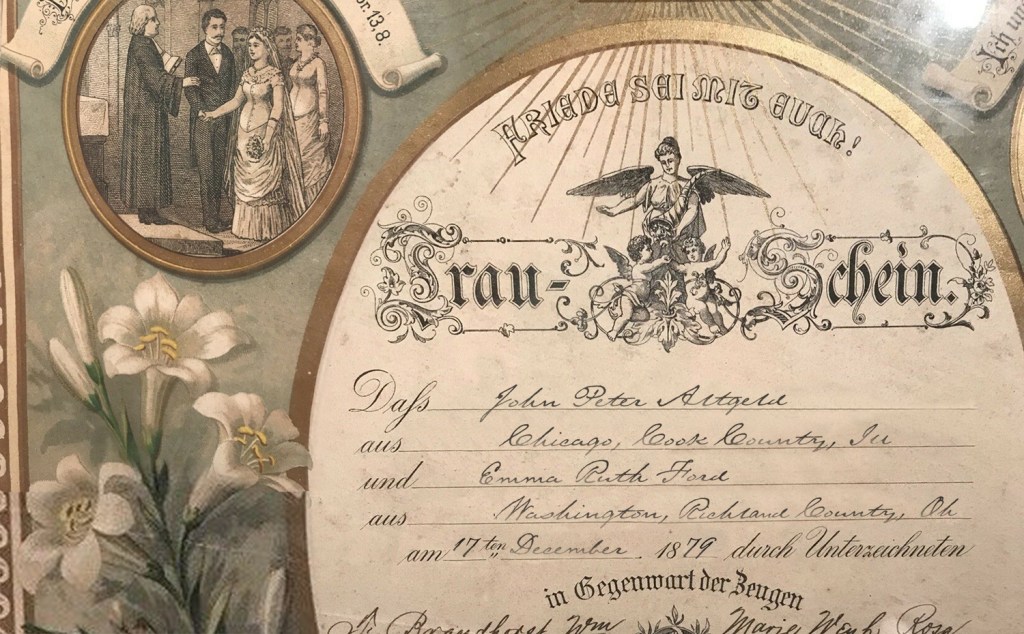 or. 13, 8.
Ich
FRIEDE SEI MIT EUCH!
Trau-Schein.
Daß John Peter Altgeld
aus Chicago, Cook County, Ill
und Emma Ruth Ford
aus Washington, Richland County, Oh
am 17ten December 1879 durch Unterzeichneten
in Gegenwart der Zeugen
Brandhorst Wm Marie Rosa